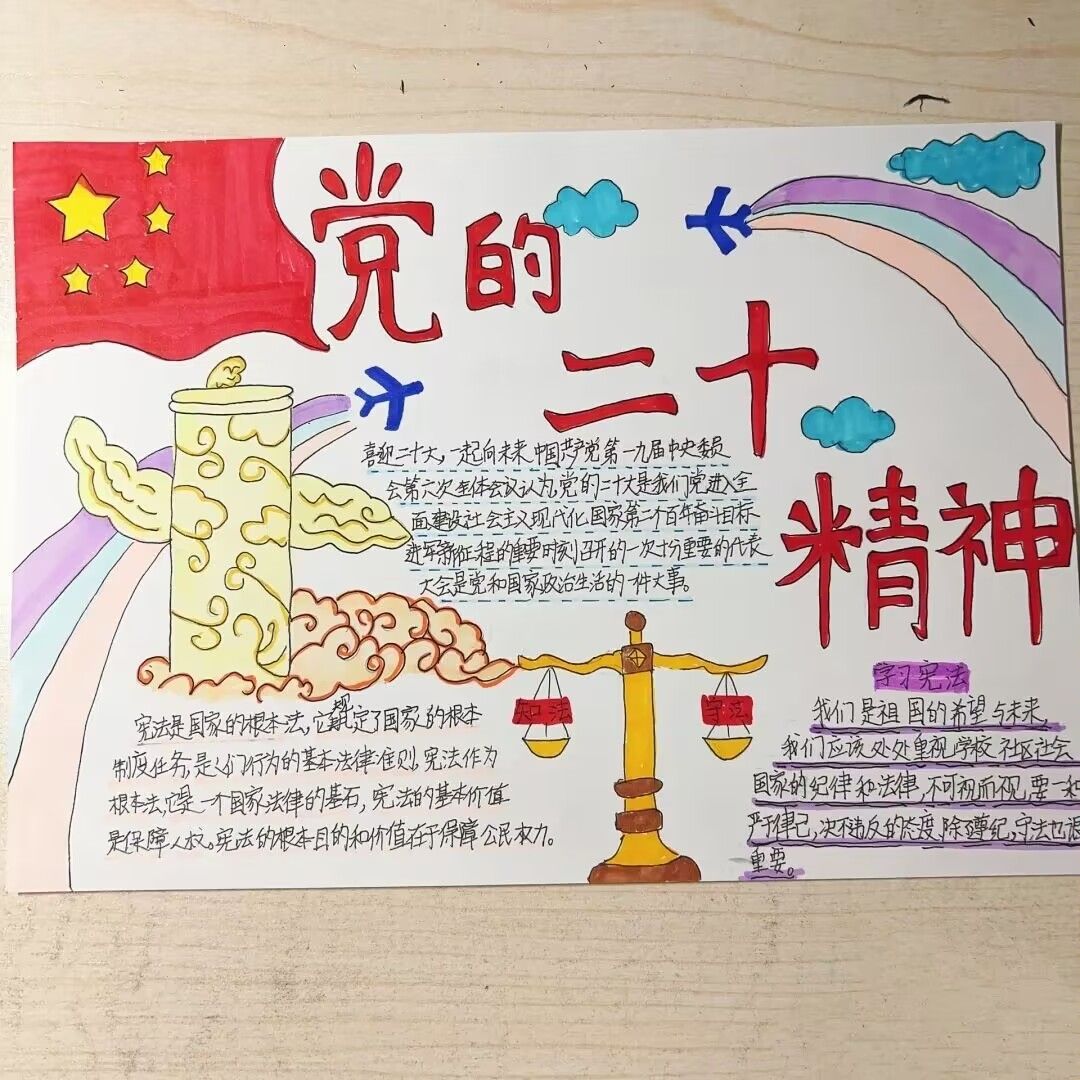 党的
二十
精神
喜迎二十大,一起向未来,中国共产党第一九届中央委员
会第六次全体会议认为,党的二十大是我们党进入全
面建设社会主义现代化国家第二个百年奋斗目标
进军新征程的重要时刻召开的一次十分重要的代表
大会是党和国家政治生活的一件大事。
知法
守法
宪法是国家的根本法,它规定了国家的根本
制度任务,是人们行为的基本法律准则,宪法作为
根本法,它是一个国家法律的基石,宪法的基本价值
是保障人权。宪法的根本目的和价值在于保障公民权力。
学习宪法
我们是祖国的希望与未来,
我们应该处处重视学校社区社会
国家的纪律和法律,不可视而视,要一种
严于律己,决不违反的态度,除遵纪,守法也很
重要。